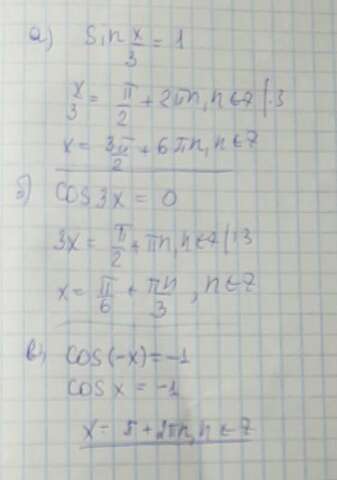 а) sin x/3 = 1
x/3 = π/2 + 2πn, n ∈ Z |·3
x = 3π/2 + 6πn, n ∈ Z
б) cos 3x = 0
3x = π/2 + πn, n ∈ Z | :3
x = π/6 + πn/3 , n ∈ Z
в) cos(-x) = -1
cos x = -1
x = π + 2πn, n ∈ Z